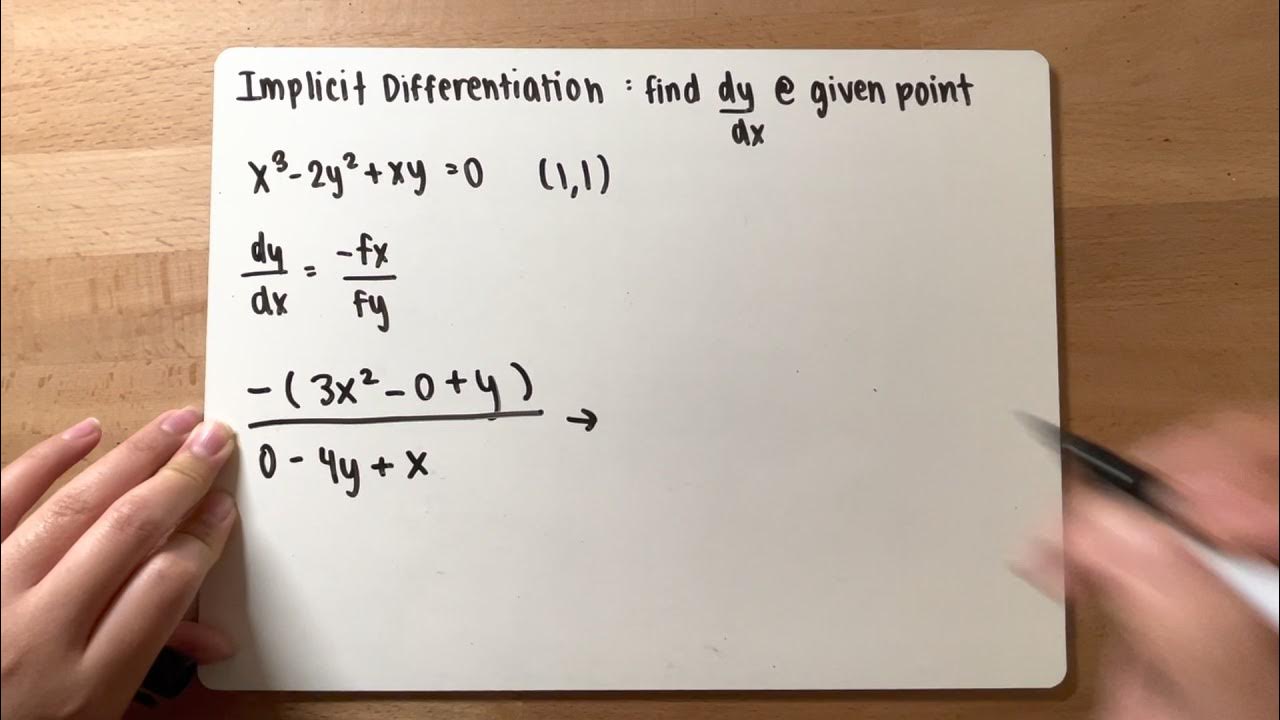 Implicit Differentiation : find dy/dx @ given point
x³-2y²+xy=0 (1,1)
dy/dx = -fx/fy
-(3x²-0+y)
0-4y+x
→